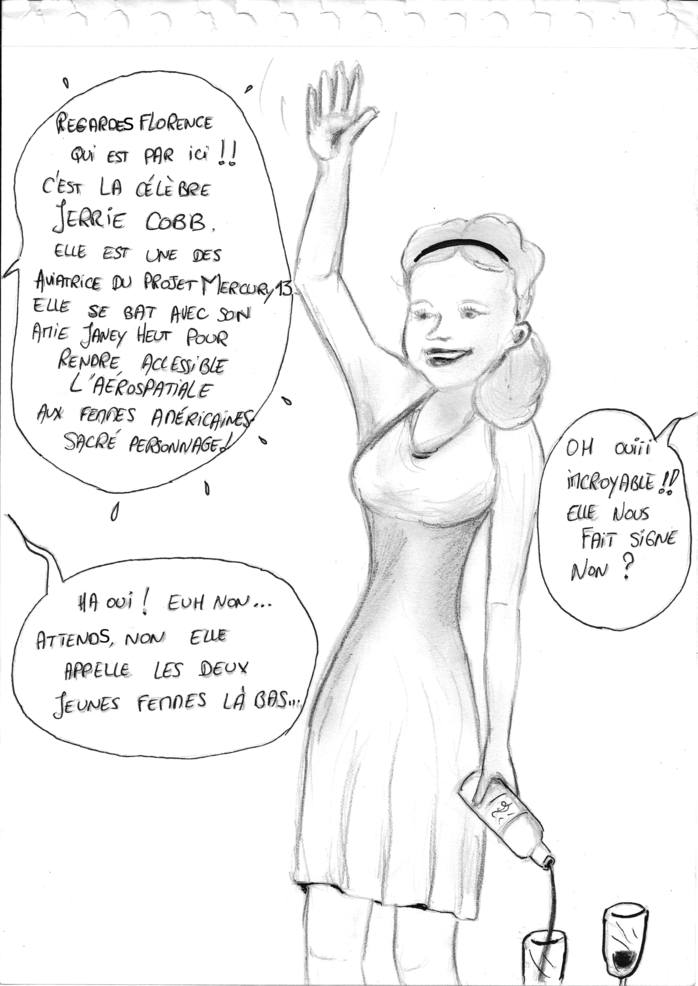 REGARDES FLORENCE
QUI EST PAR ici !!
C'EST LA CÉLÈBRE
JERRIE COBB.
ELLE EST UNE DES
AVIATRICE DU PROJET MERCURY 13.
ELLE SE BAT AVEC SON
AMIE JANEY HEUT POUR
RENDRE ACCESSIBLE
L'AÉROSPATIALE
AUX FEMMES AMÉRICAINES.
SACRÉ PERSONNAGE!
OH OUiii
iNCROYABLE !!
ELLE NOUS
FAIT SIGNE
NON ?
HA OUI ! EUH NON...
ATTENDS, NON ELLE
APPELLE LES DEUX
JEUNES FEMMES LÀ BAS...